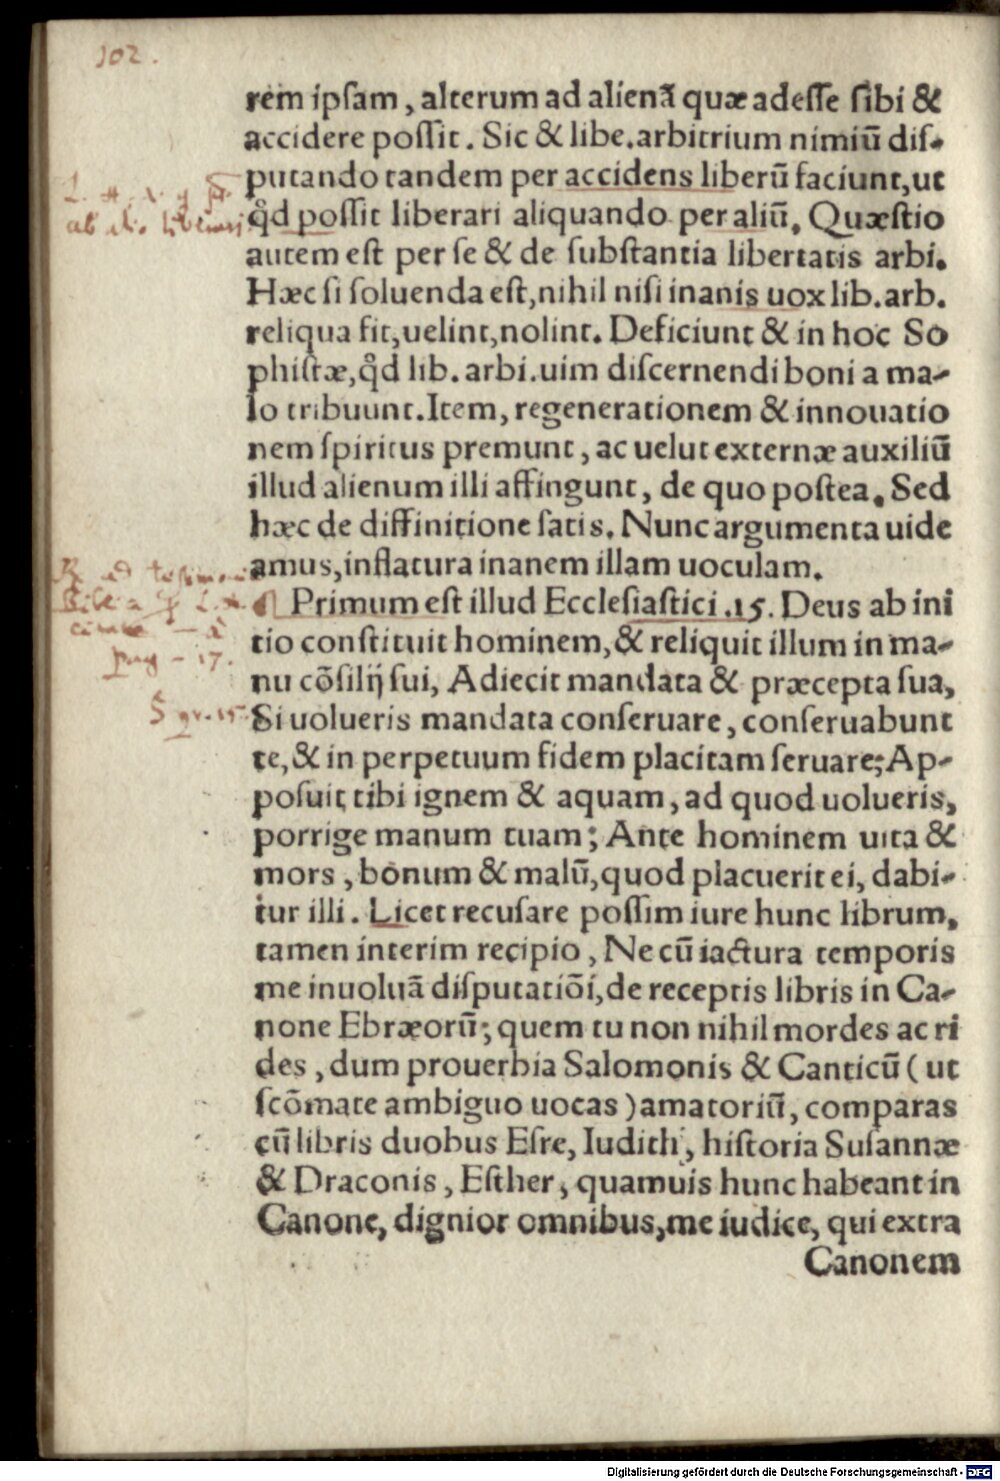 102.
rem ipsam, alterum ad alienā quæ adesse sibi &
accidere possit. Sic & libe. arbitrium nimiū dis-
putando tandem per accidens liberū faciunt, ut
qđ possit liberari aliquando per aliū. Quæstio
autem est per se & de substantia libertatis arbi.
Hæc si soluenda est, nihil nisi inanis uox lib. arb.
reliqua fit, uelint, nolint. Deficiunt & in hoc So
phistæ, qđ lib. arbi. uim discernendi boni a ma-
lo tribuunt. Item, regenerationem & innouatio
nem spiritus premunt, ac uelut externæ auxiliū
illud alienum illi affingunt, de quo postea. Sed
hæc de diffinitione satis. Nunc argumenta uide
amus, inflatura inanem illam uoculam.
Primum est illud Ecclesiastici .15. Deus ab ini
tio constituit hominem, & reliquit illum in ma-
nu cōsilij sui, Adiecit mandata & præcepta sua,
Si uolueris mandata conseruare, conseruabunt
te, & in perpetuum fidem placitam seruare; Ap-
posuit tibi ignem & aquam, ad quod uolueris,
porrige manum tuam; Ante hominem uita &
mors, bonum & malū, quod placuerit ei, dabi-
tur illi. Licet recusare possim iure hunc librum,
tamen interim recipio, Ne cū iactura temporis
me inuoluā disputatiōi, de receptis libris in Ca-
none Ebræorū; quem tu non nihil mordes ac ri
des, dum prouerbia Salomonis & Canticū (ut
scōmate ambiguo uocas) amatoriū, comparas
cū libris duobus Esre, Iudith, historia Susannæ
& Draconis, Esther, quamuis hunc habeant in
Canone, dignior omnibus, me iudice, qui extra
Canonem
Digitalisierung gefördert durch die Deutsche Forschungsgemeinschaft - DFG